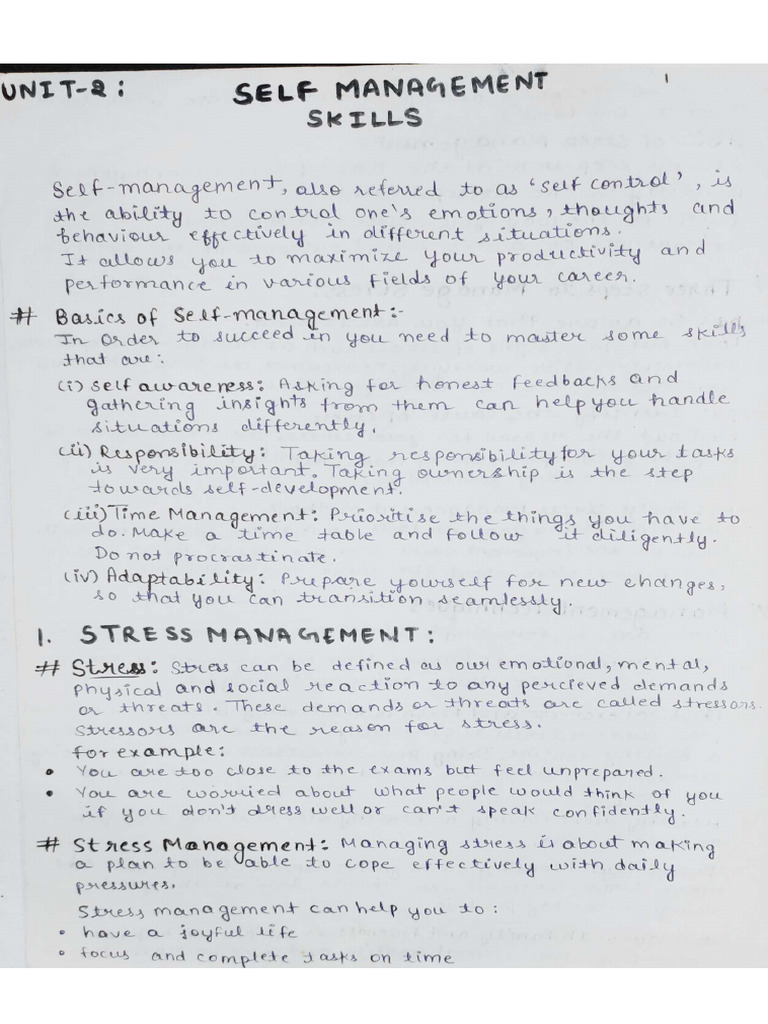 UNIT-2: SELF MANAGEMENT 1
SKILLS
Self-management, also referred to as 'self control', is
the ability to control one's emotions, thoughts and
behaviour effectively in different situations.
It allows you to maximize your productivity and
performance in various fields of your career.
# Basics of Self-management:-
In order to succeed in you need to master some skills
that are:
(i) Self awareness: Asking for honest feedbacks and
gathering insights from them can help you handle
situations differently.
(ii) Responsibility: Taking responsibility for your tasks
is very important. Taking ownership is the step
towards self-development.
(iii) Time Management: Prioritise the things you have to
do. Make a time table and follow it diligently.
Do not procrastinate.
(iv) Adaptability: Prepare yourself for new changes,
so that you can transition seamlessly.
1. STRESS MANAGEMENT:
# Stress: Stress can be defined as our emotional, mental,
physical and social reaction to any percieved demands
or threats. These demands or threats are called stressors.
Stressors are the reason for stress.
for example:
• You are too close to the exams but feel unprepared.
• You are worried about what people would think of you
if you don't dress well or can't speak confidently.
# Stress Management: Managing stress is about making
a plan to be able to cope effectively with daily
pressures.
Stress management can help you to:
• have a joyful life
• focus and complete tasks on time